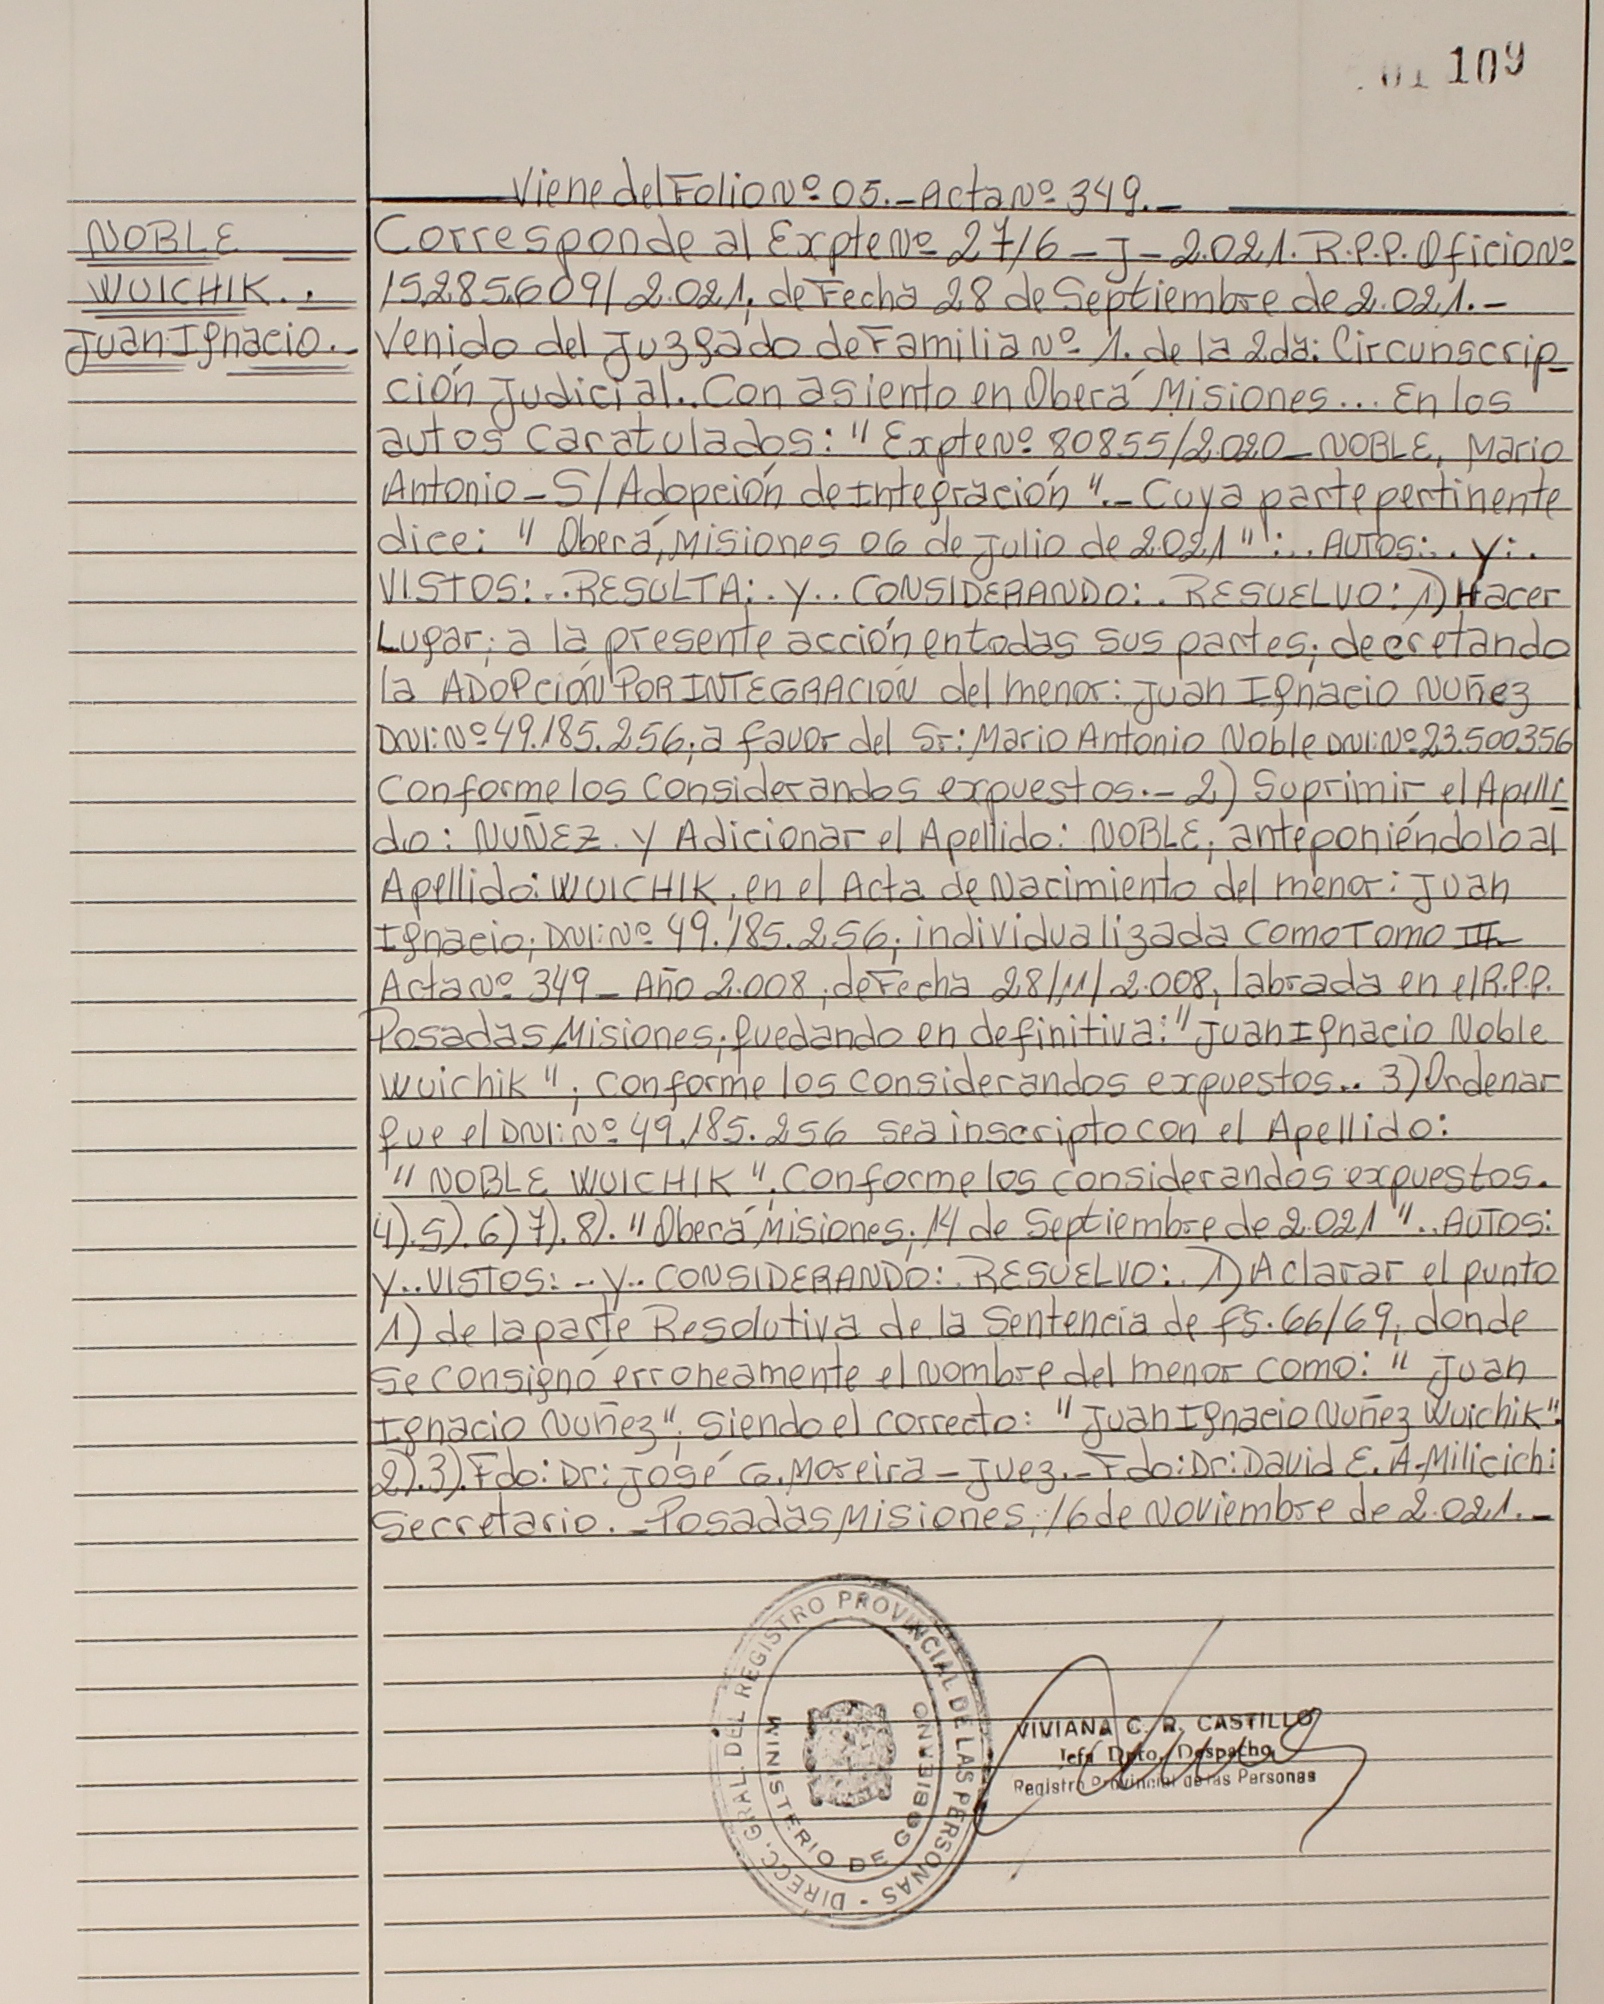 01 109
Viene del Folio Nº 05.- Acta Nº 349.-
NOBLE
WUICHIK..
Juan Ignacio.-
Corresponde al Expte Nº 27/6 - J - 2.021. R.P.P. Oficio Nº
15285609/2.021, de Fecha 28 de Septiembre de 2.021.-
Venido del Juzgado de Familia Nº 1. de la 2da: Circunscrip-
ción Judicial.. Con asiento en Oberá Misiones... En los
autos Caratulados: "Expte Nº 80855/2020 - NOBLE, Mario
Antonio - S/Adopción de Integración".- Cuya parte pertinente
dice: "Oberá, Misiones 06 de Julio de 2021":.. AUTOS:.. y:.
VISTOS:.. RESULTA:. y.. CONSIDERANDO:. RESUELVO: 1) Hacer
Lugar; a la presente acción en todas sus partes; decretando
la ADOPCIÓN POR INTEGRACIÓN del menor: Juan Ignacio Nuñez
DNI: Nº 49.185.256; a favor del Sr: Mario Antonio Noble DNI: Nº 23.500356
Conforme los Considerandos expuestos.- 2) Suprimir el Apelli
do: NUÑEZ. y Adicionar el Apellido: NOBLE; anteponiéndolo al
Apellido: WUICHIK; en el Acta de Nacimiento del menor: Juan
Ignacio; DNI: Nº 49.185.256; individualizada Como Tomo III-
Acta Nº 349 - Año 2.008; de Fecha 28/11/2.008; labrada en el R.P.P.
Posadas Misiones; quedando en definitiva: "Juan Ignacio Noble
Wuichik"; Conforme los Considerandos expuestos.. 3) Ordenar
que el DNI: Nº 49.185.256 sea inscripto con el Apellido:
"NOBLE WUICHIK". Conforme los considerandos expuestos.
4). 5). 6) 7). 8). "Oberá Misiones; 14 de Septiembre de 2.021".. AUTOS:
y.. VISTOS: - y.. CONSIDERANDO:. RESUELVO:. 1) Aclarar el punto
1) de la parte Resolutiva de la Sentencia de fs. 66/69; donde
se consignó erroneamente el Nombre del menor como: "Juan
Ignacio Nuñez"; siendo el correcto: "Juan Ignacio Nuñez Wuichik".
2). 3). Fdo: Dr: José G. Moreira - Juez.- Fdo: Dr: David E. A. Milicich:
Secretario.- Posadas Misiones; 16 de Noviembre de 2.021.-
DIRECC. GRAL. DEL REGISTRO PROVINCIAL DE LAS PERSONAS -
MINISTERIO DE GOBIERNO
VIVIANA C. R. CASTILLO
Jefa Dpto. Despacho
Registro Provincial de las Personas